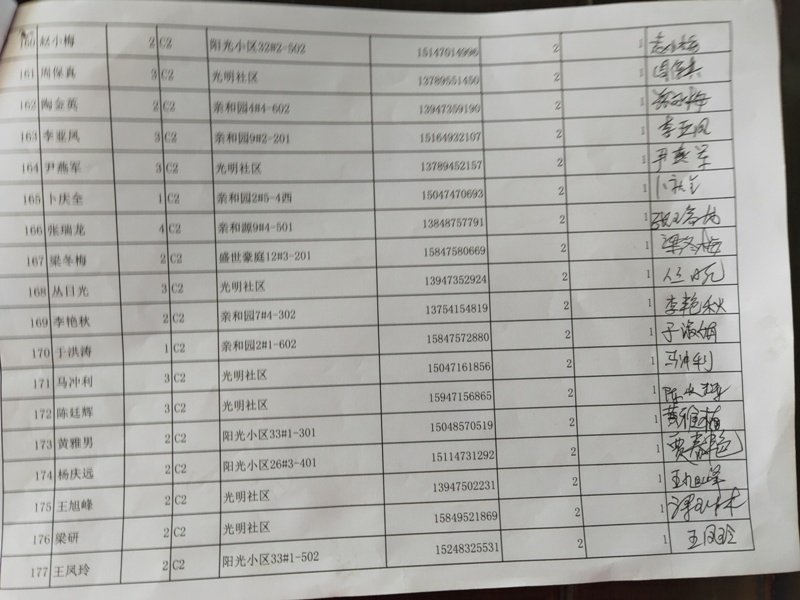 160 赵小梅 2 C2 阳光小区32#2-502 15147014996 2 1 赵小梅
161 周保真 3 C2 光明社区 13789551450 2 1 周保真
162 陶金英 2 C2 亲和园4#4-602 13947359190 2 1
163 李亚凤 3 C2 亲和园9#2-201 15164932107 2 1 李亚凤
164 尹燕军 3 C2 光明社区 13789452157 2 1 尹燕军
165 卜庆全 1 C2 亲和园2#5-4西 15047470693 2 1
166 张瑞龙 4 C2 亲和源9#4-501 13848757791 2 1
167 梁冬梅 2 C2 盛世豪庭12#3-201 15847580669 2 1 梁冬梅
168 丛日光 3 C2 光明社区 13947352924 2 1 丛日光
169 李艳秋 2 C2 亲和园7#4-302 13754154819 2 1 李艳秋
170 于洪涛 1 C2 亲和园2#1-602 15847572880 2 1
171 马冲利 3 C2 光明社区 15047161856 2 1 马冲利
172 陈廷辉 3 C2 光明社区 15947156865 2 1
173 黄雅男 2 C2 阳光小区33#1-301 15048570519 2 1 黄雅楠
174 杨庆远 2 C2 阳光小区26#3-401 15114731292 2 1 贾春艳
175 王旭峰 2 C2 光明社区 13947502231 2 1 王旭峰
176 梁研 2 C2 光明社区 15849521869 2 1
177 王凤玲 2 C2 阳光小区33#1-502 15248325531 2 1 王凤玲